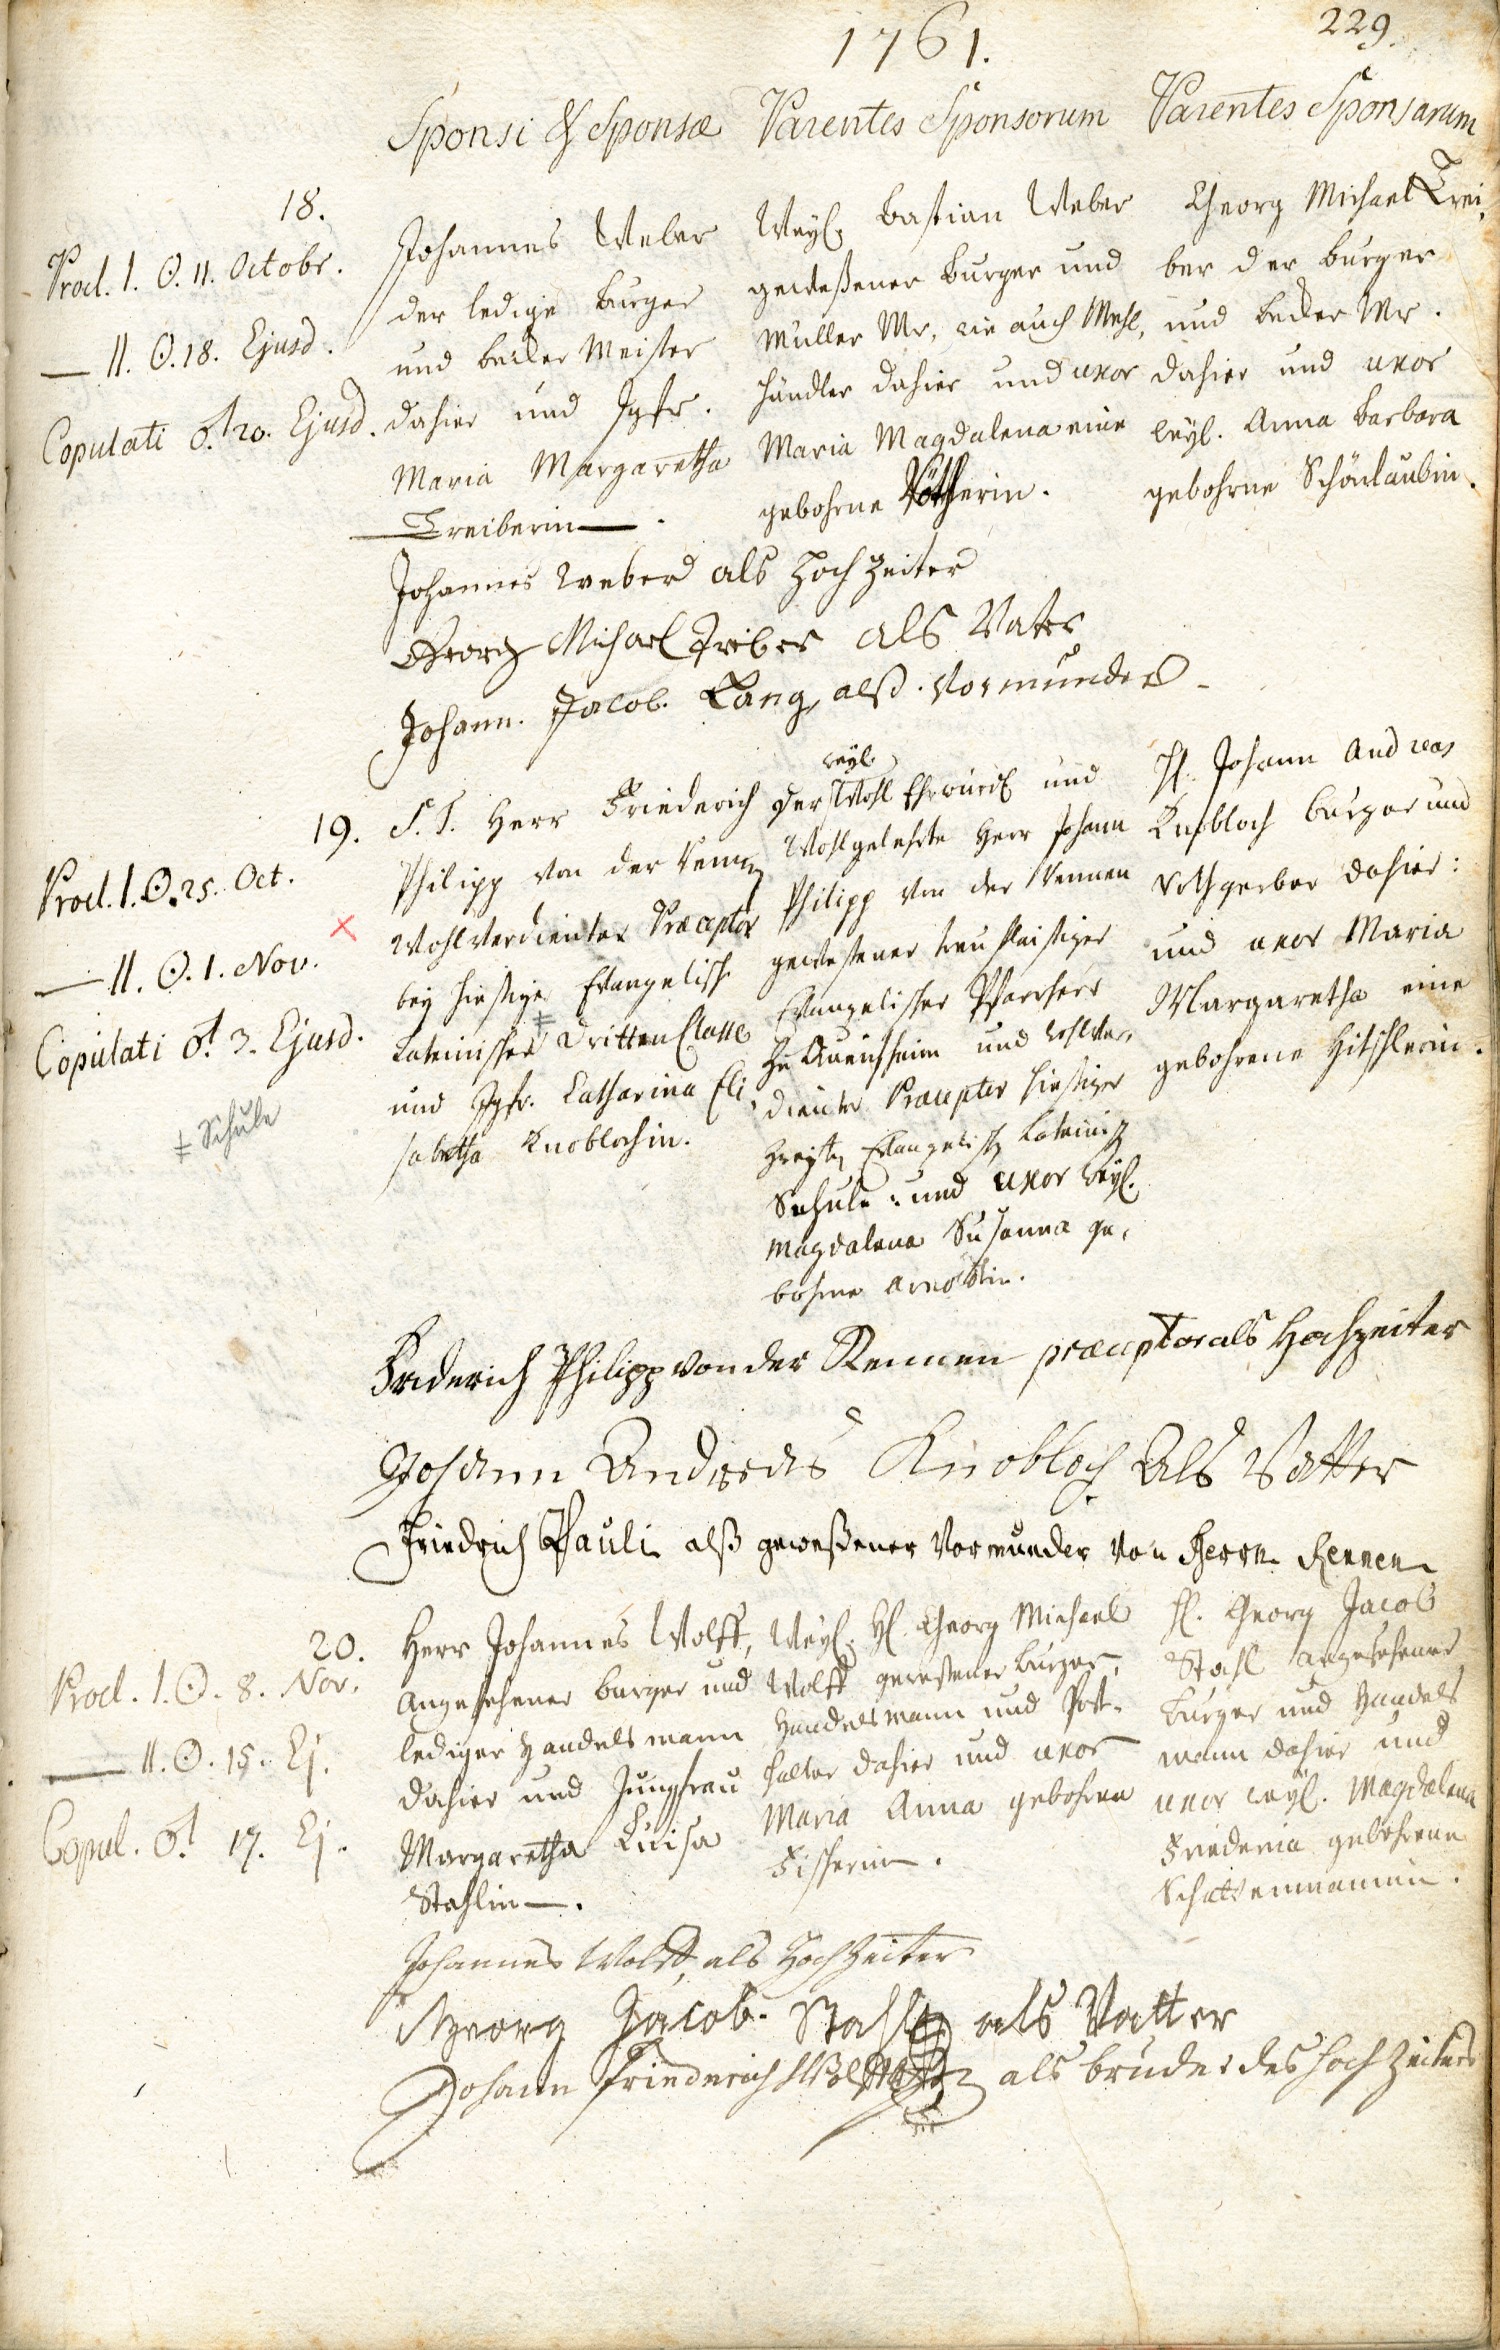 1761.
229.
Sponsi & Sponsæ
Parentes Sponsorum
Parentes Sponsarum
18.
Procl. I. ☉. 11. Octobr.
— II. ☉. 18. Ejusd.
Copulati ♂. 20. Ejusd.
Johannes Weber
der ledige Burger
und Becker Meister
dahier und Jgfr.
Maria Margaretha
Treiberin—.
Weyl. Bastian Weber
geweßener Burger und
Müller Mr, wie auch Mehl,
händler dahier und uxor
Maria Magdalena eine
gebohrne Rötherin.
Georg Michael Trei,
ber der Burger
und Becker Mr.
dahier und uxor
weyl. Anna Barbara
gebohrne Schönlaubin.
Johannes weber als Hoch Zeiter
Georg Michael Treiber als Vater
Johann. Jacob. Lang, alß. Vormunder
19.
Procl. I. ☉. 25. Oct.
— II. ☉. 1. Nov.
Copulati ♂. 3. Ejusd.
‡ Schule
S. T. Herr Friederich
Philipp von der Kennen
Wohlverdienter Præceptor
bey hießiger Evangelisch
Lateinischer ‡ dritten Classe
und Jgfr. Catharina Eli,
sabetha Knoblochin.
weyl.
Der Wohl Ehrwürd. und
Wohlgelehrte Herr Johann
Philipp von der Kennen
geweßener treu fleißiger
Evangelischer Pfarrherr
zu Queichheim und wohlver,
dienter Præceptor hießiger
Zweyten Evangelisch Lateinisch
Schule: und uxor weyl.
Magdalena Susanna ge,
bohrne Arnoldin.
H. Johann Andreas
Knobloch Burger und
Rothgerber dahier:
und uxor Maria
Margaretha eine
gebohrene Hitschlerin.
Friderich Philipp von der Kennen præceptor als Hochzeiter
Johann Andreas Knobloch Als Vatter
Friedrich Pauli alß geweßener Vormunder von Herrn Kennen
20.
Procl. I. ☉. 8. Nov.
— II. ☉. 15. Ej.
Copul. ♂. 17. Ej.
Herr Johannes Wolff,
Angesehener Burger und
lediger Handelsmann
dahier und Jungfrau
Margaretha Luisa
Stahlin—.
Weyl. H. Georg Michael
Wolff geweßener Burger,
Handelsmann und Post-
halter dahier und uxor
Maria Anna gebohrne
Fischerin.
H. Georg Jacob
Stahl angesehener
Burger und Handels
mann dahier und
uxor weyl. Magdalena
Friederica gebohrene
Schattenmannin.
Johannes Wolff, als Hoch Zeiter
Georg Jacob. Stahl als Vatter
Johann Friederich Wolff als bruder des hoch Zeiters